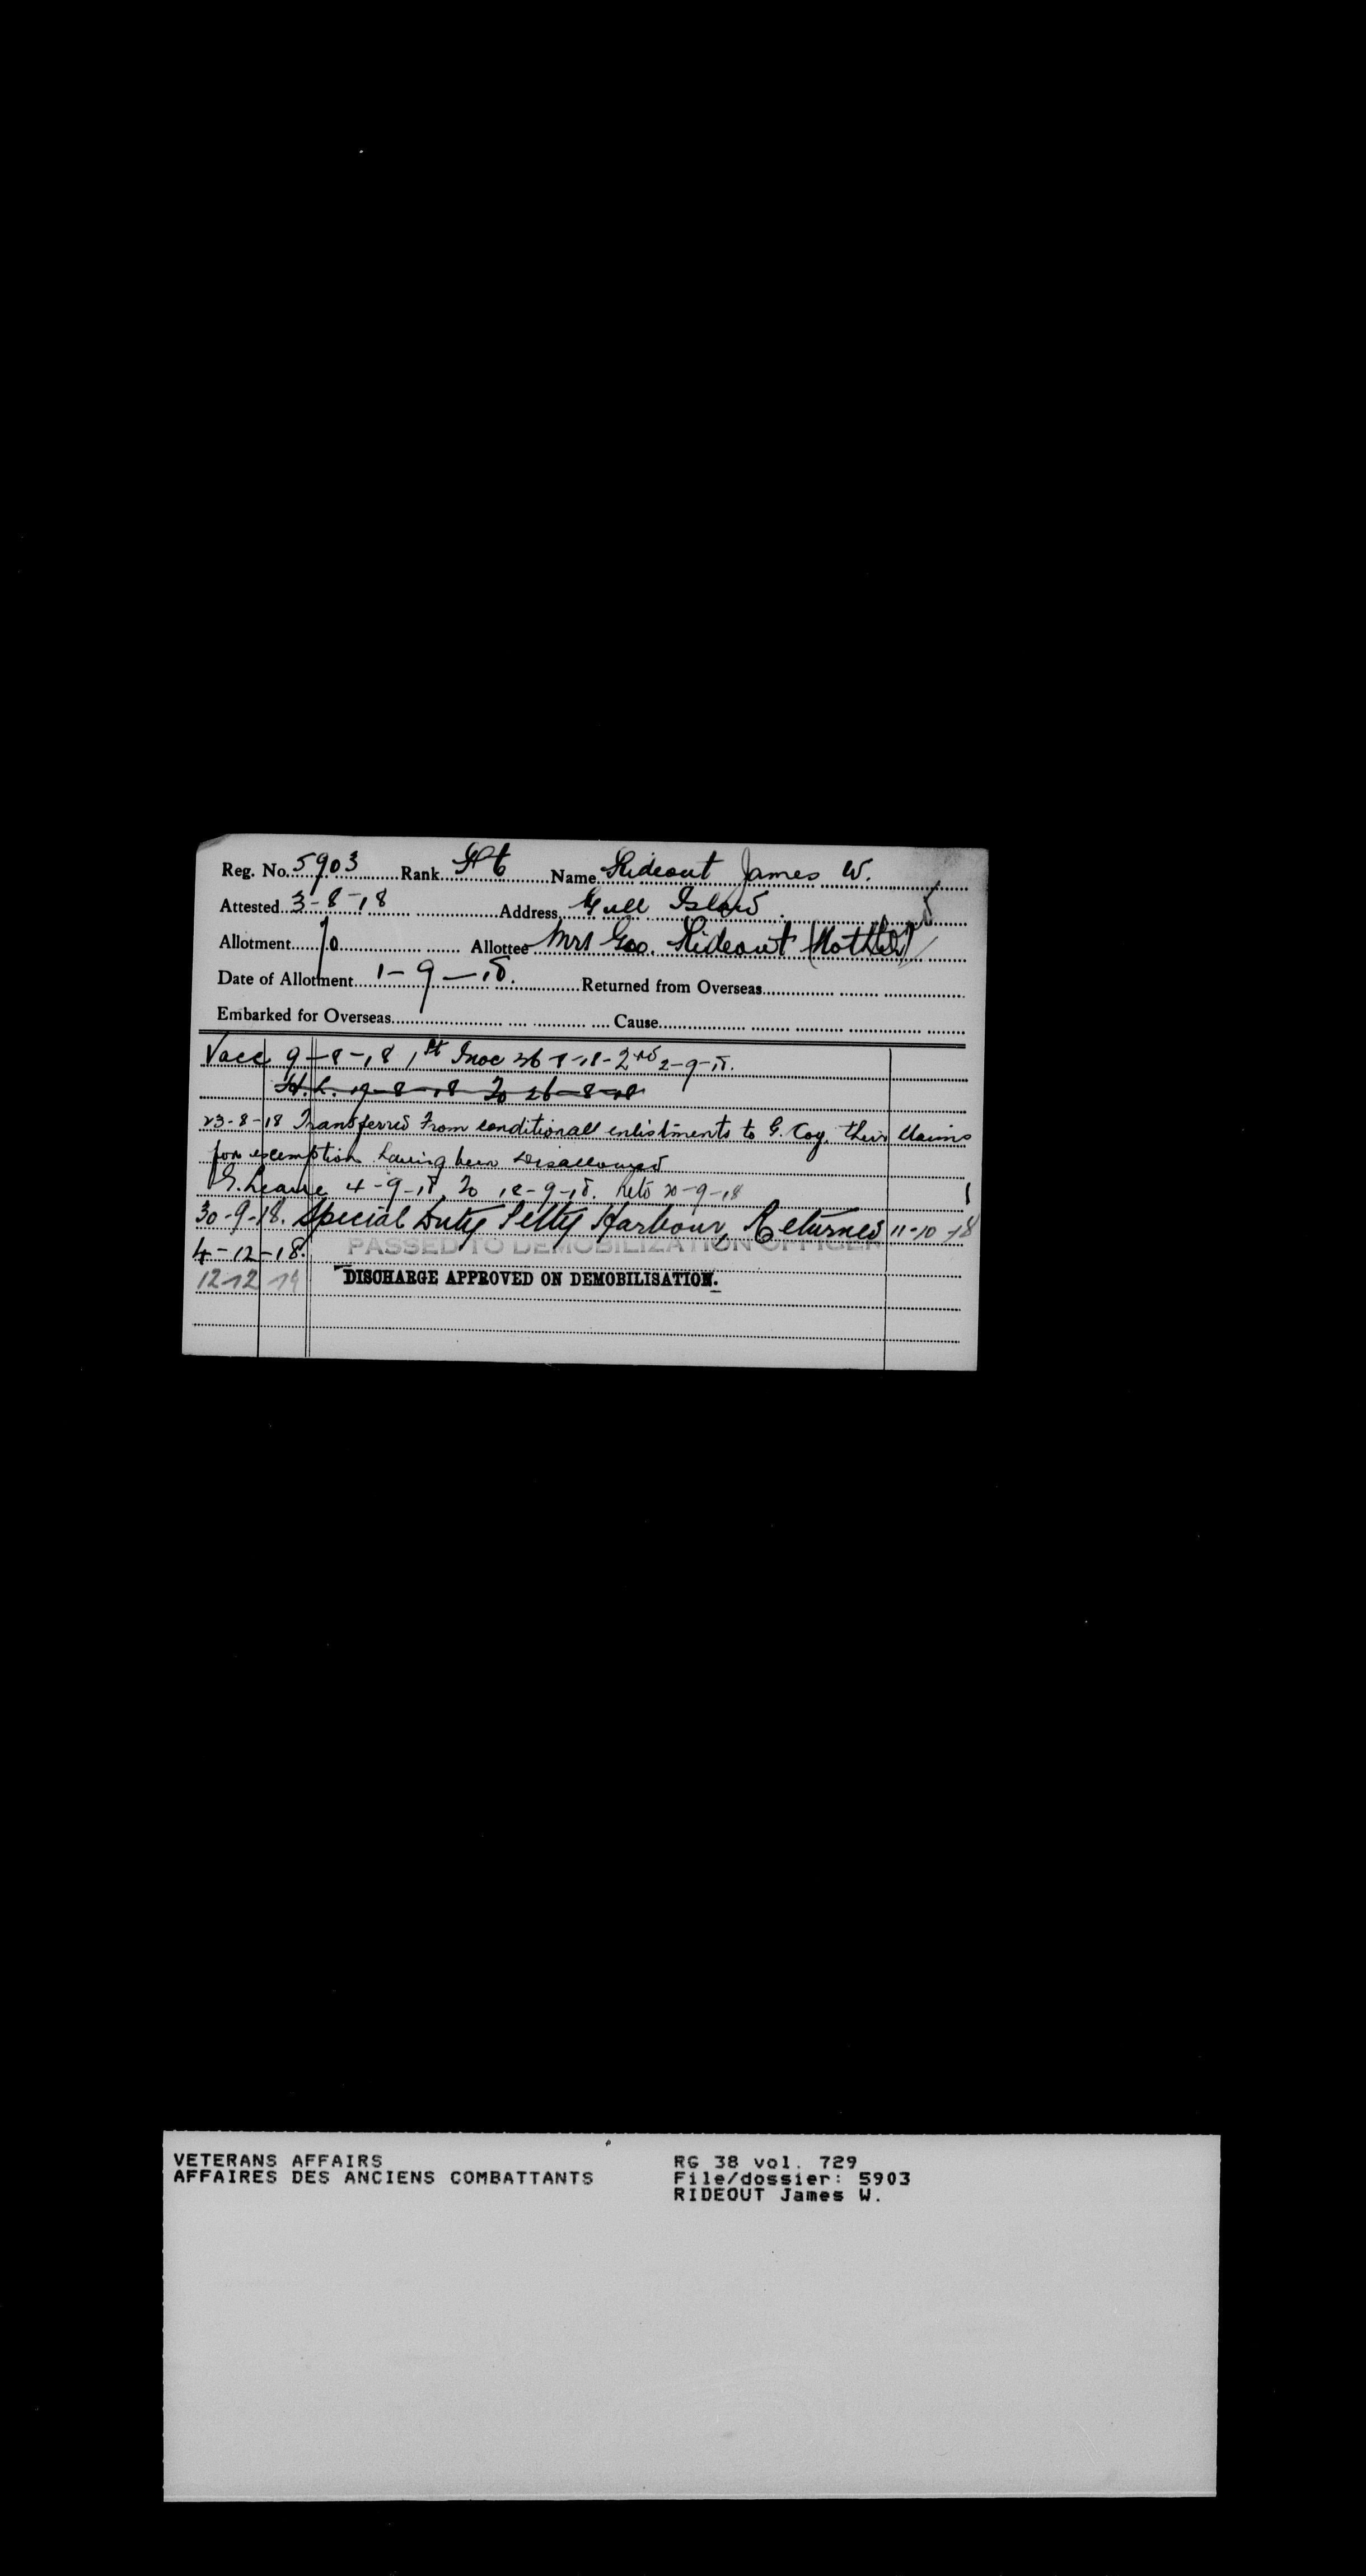 Reg. No. 5903 Rank Pte Name Rideout James W.
Attested 3-8-18 Address Gull Island
Allotment 70 Allottee Mrs Geo. Rideout (Mother)
Date of Allotment 1-9-18. Returned from Overseas
Embarked for Overseas Cause
Vacc 9-8-18 1st Inoc 26-8-18-2nd 2-9-18.
H.L. 19-8-18 To 26-8-18
23-8-18 Transferred From conditional enlistments to G. Coy. their claims
for exemption having been disallowed
G. Leave 4-9-18 To 18-9-18. Retd 20-9-18
30-9-18. Special Duty Petty Harbour, Returned 11-10-18
4-12-18. PASSED TO DEMOBILIZATION OFFICER
12-12 DISCHARGE APPROVED ON DEMOBILISATION.
VETERANS AFFAIRS RG 38 vol. 729
AFFAIRES DES ANCIENS COMBATTANTS File/dossier: 5903
RIDEOUT James W.